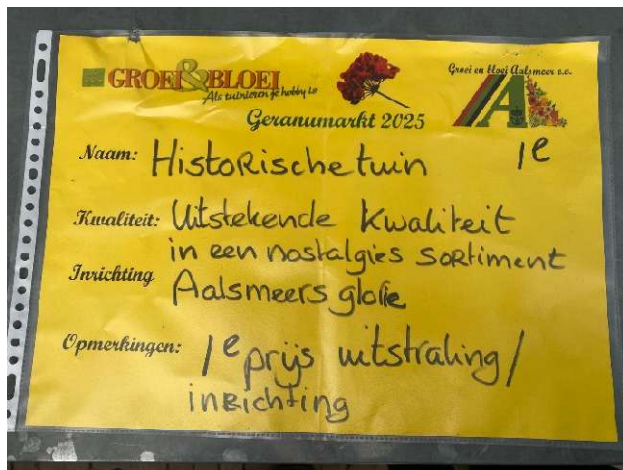 GROEI & BLOEI
Als tuinieren je hobby is
Groei en bloei Aalsmeer e.o.
Geranumarkt 2025
Naam: Historische tuin 1e
Kwaliteit: Uitstekende kwaliteit
in een nostalgies sortiment
Inrichting Aalsmeers glorie
Opmerkingen: 1e prijs uitstraling/
inrichting